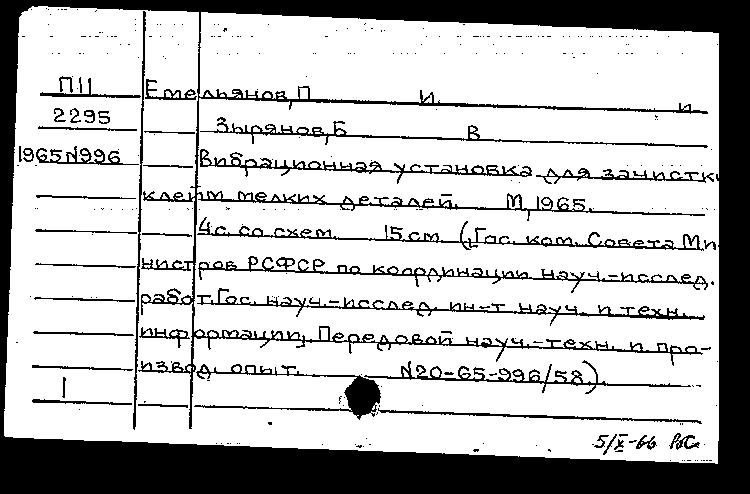 П11 Емельянов, П И. и
2295 Зырянов, Б В
1965 N996 Вибрационная установка для зачистки
клейм мелких деталей. М, 1965.
4 с. со схем. 15 см (Гос. ком. Совета Ми-
нистров РСФСР по координации науч.-исслед.
работ. Гос. науч.-исслед. ин-т науч. и техн.
информации, Передовой науч.-техн. и про-
извод. опыт. N20-65-996/58).
1
5/X-66